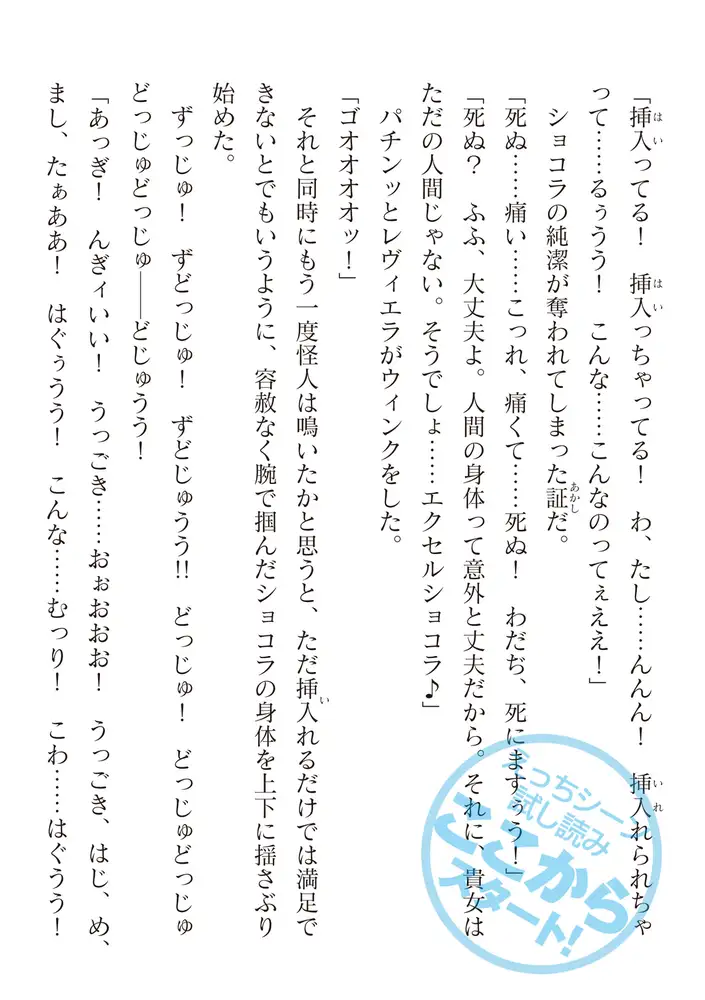 「挿入ってる！　挿入っちゃってる！　わ、たし……んんん！　挿入れられちゃ
って……るぅうう！　こんな……こんなのってぇええ！」
ショコラの純潔が奪われてしまった証だ。
「死ぬ……痛い……こっれ、痛くて……死ぬ！　わだぢ、死にますぅう！」
「死ぬ？　ふふ、大丈夫よ。人間の身体って意外と丈夫だから。それに、貴女は
ただの人間じゃない。そうでしょ……エクセルショコラ♪」
パチンッとレヴィエラがウィンクをした。
「ゴオオオオッ！」
それと同時にもう一度怪人は鳴いたかと思うと、ただ挿入れるだけでは満足で
きないとでもいうように、容赦なく腕で掴んだショコラの身体を上下に揺さぶり
始めた。
ずっじゅ！　ずどっじゅ！　ずどじゅうう!!　どっじゅ！　どっじゅどっじゅ
どっじゅどっじゅ――どじゅうう！
「あっぎ！　んぎィいい！　うっごき……おぉおおお！　うっごき、はじ、め、
まし、たぁああ！　はぐぅうう！　こんな……むっり！　こわ……はぐうう！
えっちシーン
試し読み
ここから
スタート！